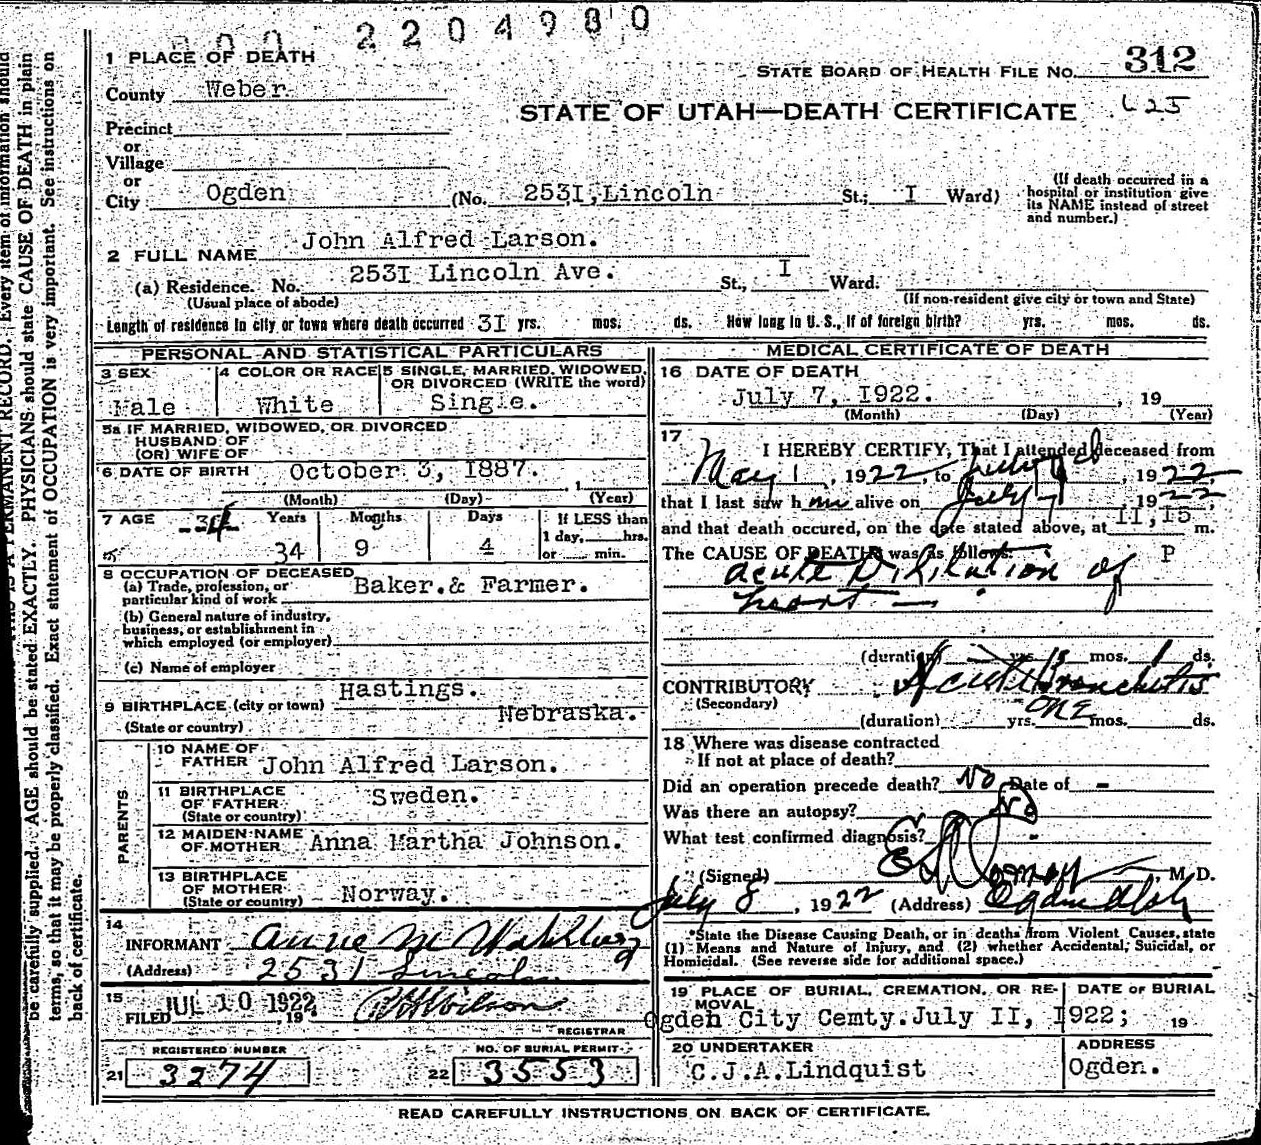 2204980
1 PLACE OF DEATH
312
STATE BOARD OF HEALTH FILE No.
County Weber
STATE OF UTAH—DEATH CERTIFICATE
Precinct
or
Village
or
City Ogden (No. 253I, Lincoln St.; I Ward)
(If death occurred in a hospital or institution give its NAME instead of street and number.)
2 FULL NAME John Alfred Larson.
(a) Residence. No. 253I Lincoln Ave. St., I Ward.
(Usual place of abode) (If non-resident give city or town and State)
Length of residence in city or town where death occurred 3I yrs. mos. ds. How long in U. S., if of foreign birth? yrs. mos. ds.
PERSONAL AND STATISTICAL PARTICULARS
3 SEX Male
4 COLOR OR RACE White
5 SINGLE, MARRIED, WIDOWED, OR DIVORCED (WRITE the word) Single.
5a IF MARRIED, WIDOWED, OR DIVORCED
HUSBAND OF
(OR) WIFE OF
6 DATE OF BIRTH October 3, 1887. , 1
(Month) (Day) (Year)
7 AGE 34 Years Months Days
If LESS than
1 day, hrs.
or min.
34 9 4
8 OCCUPATION OF DECEASED
(a) Trade, profession, or particular kind of work Baker.& Farmer.
(b) General nature of industry, business, or establishment in which employed (or employer)
(c) Name of employer
9 BIRTHPLACE (city or town) Hastings.
(State or country) Nebraska.
PARENTS
10 NAME OF FATHER John Alfred Larson.
11 BIRTHPLACE OF FATHER (State or country) Sweden.
12 MAIDEN NAME OF MOTHER Anna Martha Johnson.
13 BIRTHPLACE OF MOTHER (State or country) Norway.
14
INFORMANT Anna M Wahlberg
(Address) 2531 Lincoln
15
FILED JUL 10 1922, 19
REGISTRAR
REGISTERED NUMBER
21 3274
NO. OF BURIAL PERMIT
22 3553
MEDICAL CERTIFICATE OF DEATH
16 DATE OF DEATH
July 7, 1922. , 19
(Month) (Day) (Year)
17
I HEREBY CERTIFY, That I attended deceased from
May 1, 1922, to July, 1922,
that I last saw him alive on July 7, 1922,
and that death occured, on the date stated above, at II,I5 m.
The CAUSE OF DEATH was as follows: P
acute Dilitation of
heart —
(duration) yrs. mos. 1 ds.
CONTRIBUTORY Acute Bronchitis
(Secondary)
(duration) yrs. one mos. ds.
18 Where was disease contracted
If not at place of death?
Did an operation precede death? No Date of -
Was there an autopsy? No
What test confirmed diagnosis? -
(Signed) , M. D.
July 8, 1922 (Address) Ogden Utah
*State the Disease Causing Death, or in deaths from Violent Causes, state
(1) Means and Nature of Injury, and (2) whether Accidental, Suicidal, or
Homicidal. (See reverse side for additional space.)
19 PLACE OF BURIAL, CREMATION, OR REMOVAL
DATE OF BURIAL
Ogden City Cemty. July II, 1922; 19
20 UNDERTAKER
C.J.A.Lindquist
ADDRESS
Ogden.
READ CAREFULLY INSTRUCTIONS ON BACK OF CERTIFICATE.
PERMANENT RECORD. Every item of information should
be carefully supplied. AGE should be stated EXACTLY. PHYSICIANS should state CAUSE OF DEATH in plain
terms, so that it may be properly classified. Exact statement of OCCUPATION is very important. See instructions on
back of certificate.